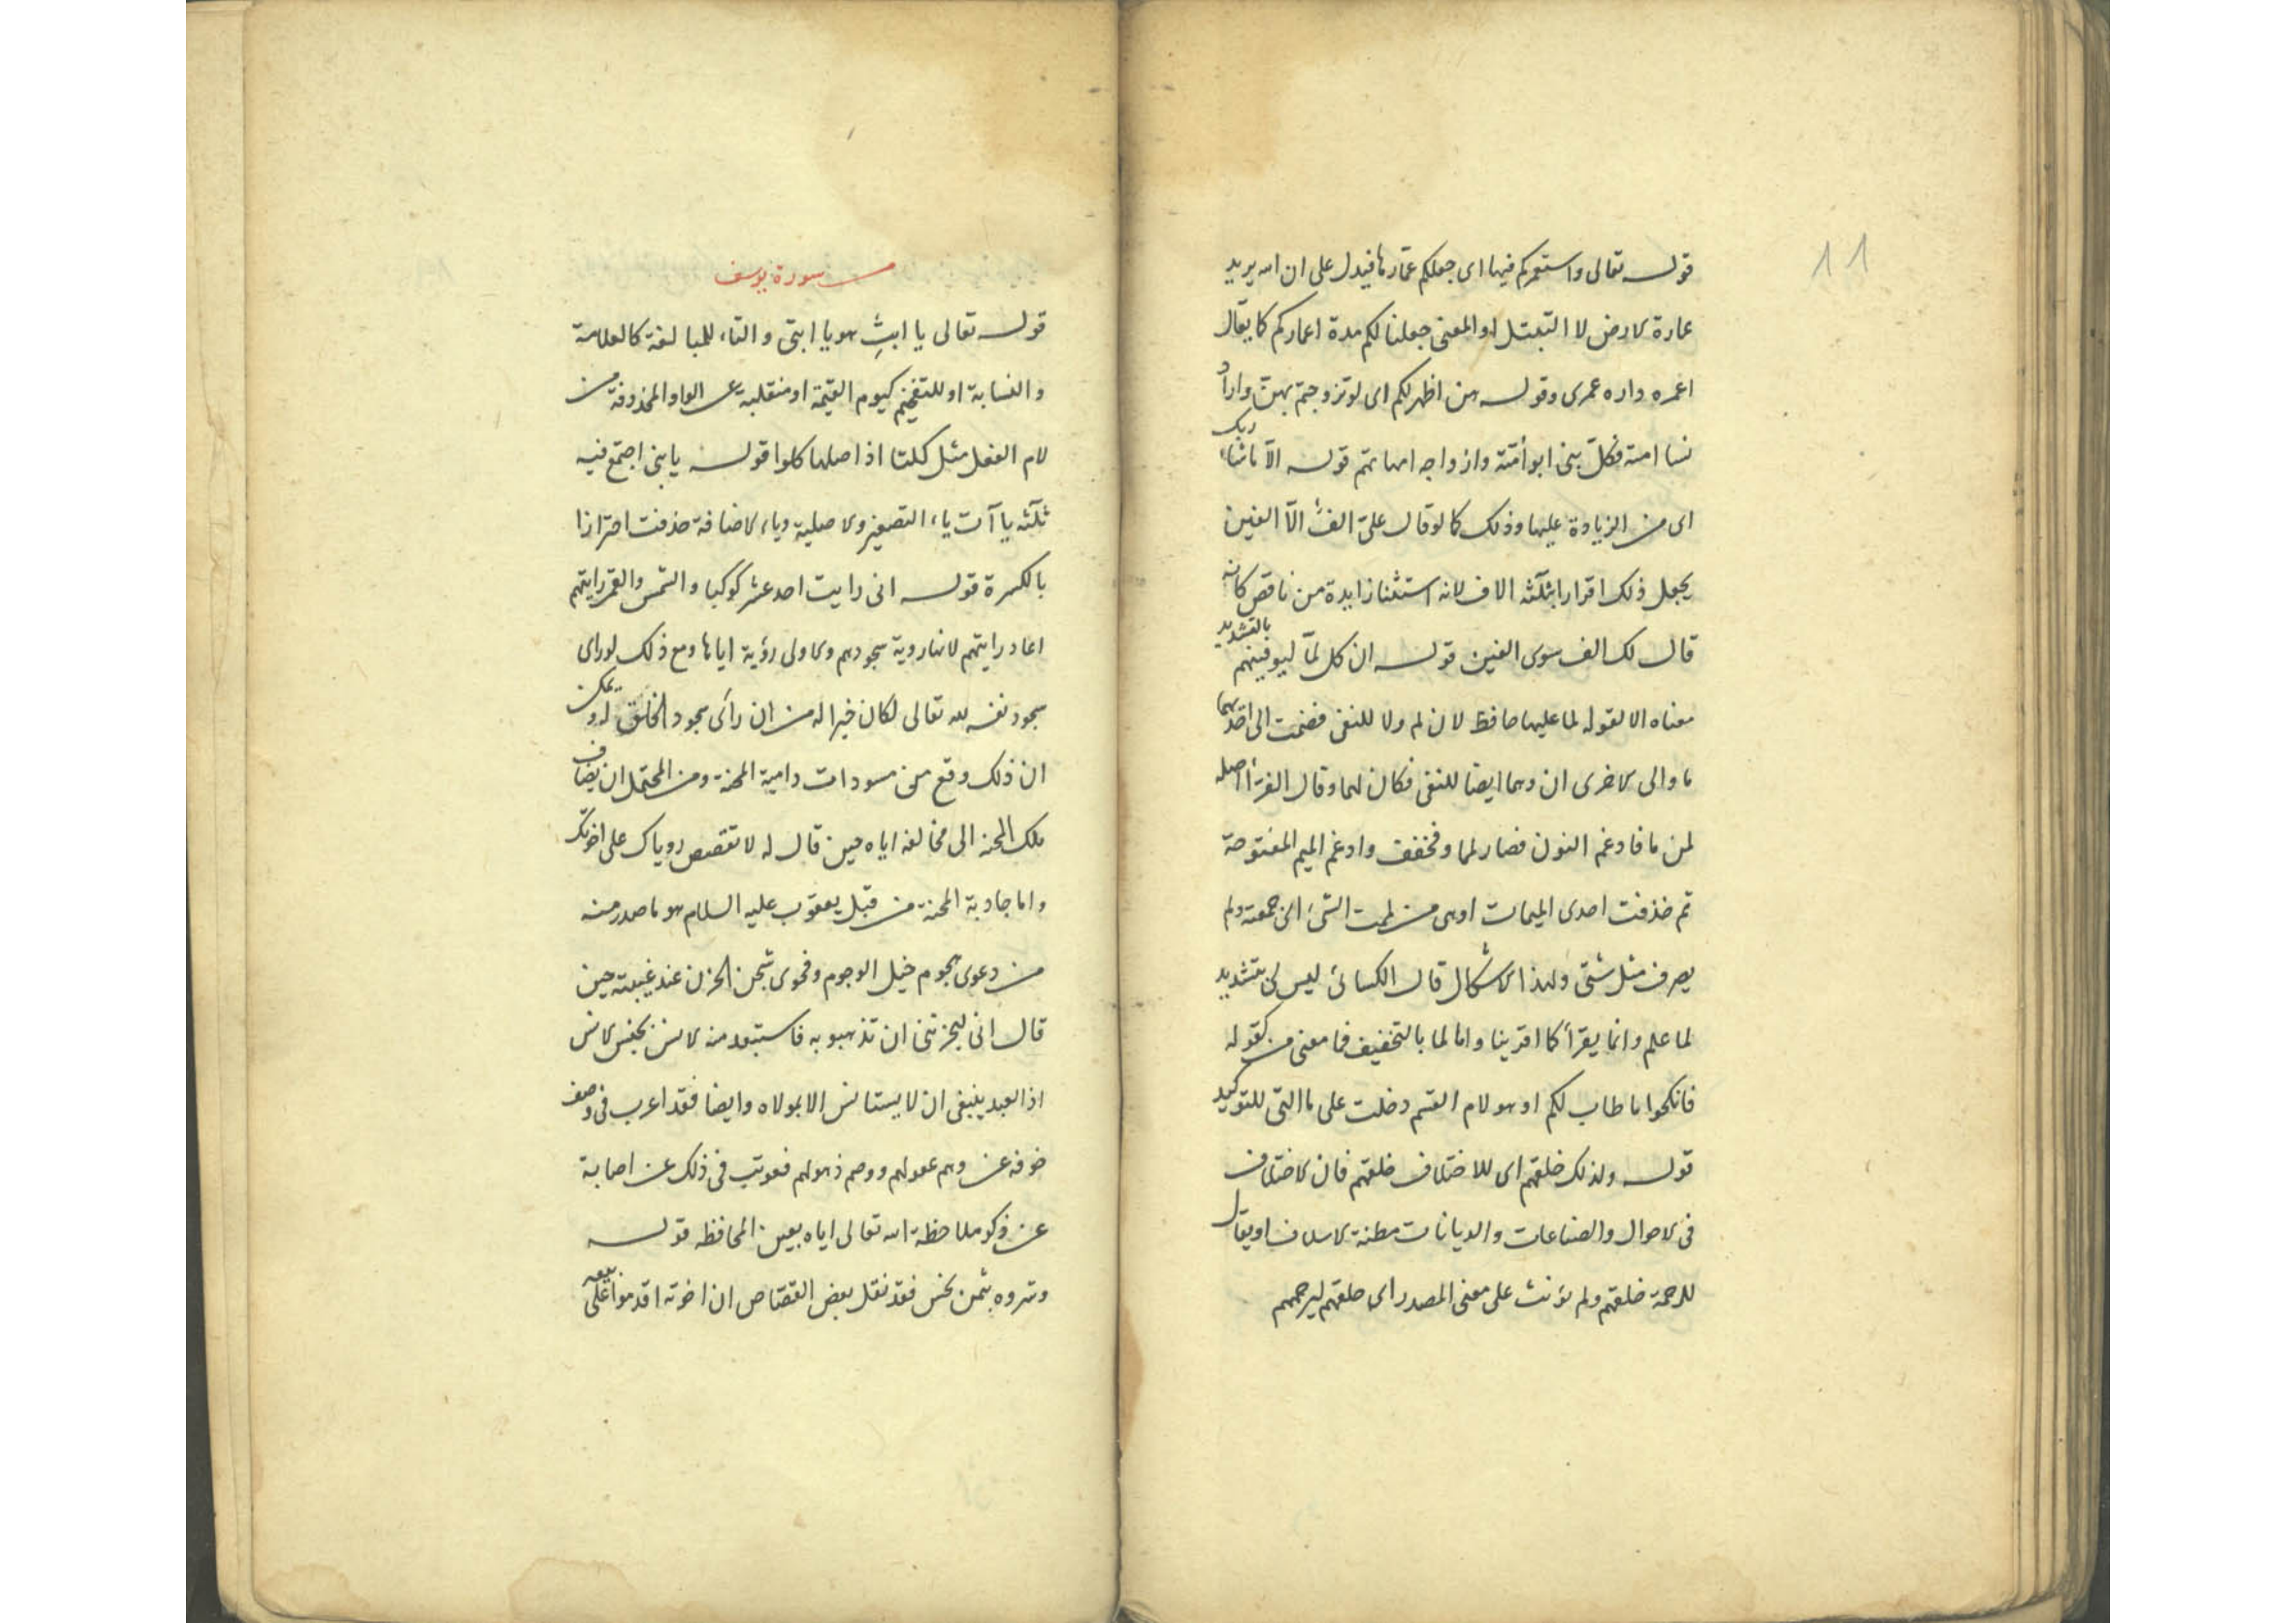 11
قوله تعالى واستعمركم فيها اى جعلكم عمّارها فيدل على ان الله يريد
عمارة الارض لا التبتل او المعنى جعلنا لكم مدة اعماركم كما يقال
اعمره داره عمرى وقوله هن اطهر لكم اى لو تزوجتم بهن واراد
نسا امته فكل نبى ابو أمّته وازواجه امهاتهم قوله الّا ماشاء ربك
اى من الزيادة عليها وذلك كما لو قال علىّ الفٌ الّا الفين
يجعل ذلك اقرارا بثلثة الاف لانه استثنا زايدة من ناقص كانه
قال لك الف سوى الفين قوله ان كل لمّا ليوفينهم بالتشديد
معناه الا لقوله لما عليها حافظ لان لم ولا للنفى فضمت الى احدهما
ما والى الاخرى ان وهما ايضا للنفى فكان لهما وقال الفرّأ اصله
لمن ما فادغم النون فصار لمما وفخفف وادغم الميم المفتوحة
ثم حذفت احدى الميمات او هى من لممت الشئ اى جمعته ولم
يصرف مثل شتى ولهذا الاشكال قال الكسائى ليس لى بتشديد
لما علم وانما يقرأ كما اقرينا واما لما بالتخفيف فما معنى من كقوله
فانكحوا ما طاب لكم او هو لام القسم دخلت على ما التى للتوكيد
قوله ولذلك خلقهم اى للاختلاف خلقهم فان الاختلاف
فى الاحوال والصناعات والديانات مظنة الاسلاف او يقال
للرحمة خلقهم ولم يؤنث على معنى المصدر اى خلقهم ليرحمهم
من سورة يوسف
قوله تعالى يا ابتِ هو يا ابتى والتاء للمبالغة كالعلامة
والنسابة او للتفخيم كيوم القيمة او منقلبة عن الواو المحذوفة من
لام الفعل مثل كلتا اذ اصلها كلوا قوله يا بنى اجتمع فيه
ثلثه يا آت ياء التصغير والاصلية وياء الاضافة حذفت احترازا
بالكسرة قوله انى رايت احد عشر كوكبا والشمس والقمر رايتهم
اعاد رايتهم لانها روية سجودهم والاولى رؤية اياها ومع ذلك لو راى
سجود نفسه لله تعالى لكان خيرا له من ان رأى سجود الخلق له ويمكن
ان ذلك وقع من مسودات دامية المحنة ومن المحتمل ان يضاف
ملك المحنة الى مخالفه اياه حين قال له لا تقصص روياك على اخوتك
واما جادبة المحنة من قبل يعقوب عليه السلام هو ما صدر منه
من دعوى هجوم خيل الوجوم وفحوى شجن الحزن عند غيبته حين
قال انى ليحزننى ان تذهبو به فاستبعد منه الانس بجنس الانس
اذ العبد ينبغى ان لا يستانس الا بمولاه وايضا فقد اعرب فى وصف
خوفه عن وهم عقولهم ووصم ذهولهم فعوتب فى ذلك عن اصابة
عن ذكر ملاحظة الله تعالى اياه بعين المحافظه قوله
وشروه بثمن بخس فقد نقل بعض القصّاص ان اخوته اقدموا على بيعه